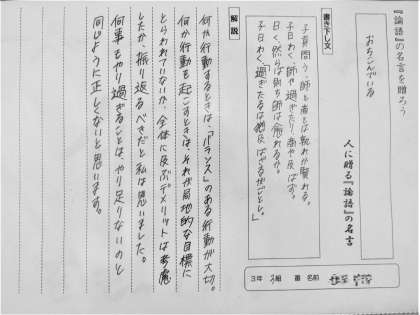 『論語』の名言を贈ろう
おちこんでいる
人に贈る『論語』の名言
書き下し文
子貢問う、師と商とは孰れか賢れる。
子曰わく、師や過ぎたり、商や及ばず。
曰く、然らば則ち師は愈れるか。
子曰わく、「過ぎたるは猶及ばざるがごとし。」
3年 組 番 名前
解説
何か行動するときは、「バランス」のある行動が大切。
何か行動を起こすときは、それが局地的な目標に
とらわれていないか、全体に及ぶデメリットは考慮
したか、振り返るべきだと私は思いました。
何事もやり過ぎることは、やり足りないのと
同じように正しくないと思います。